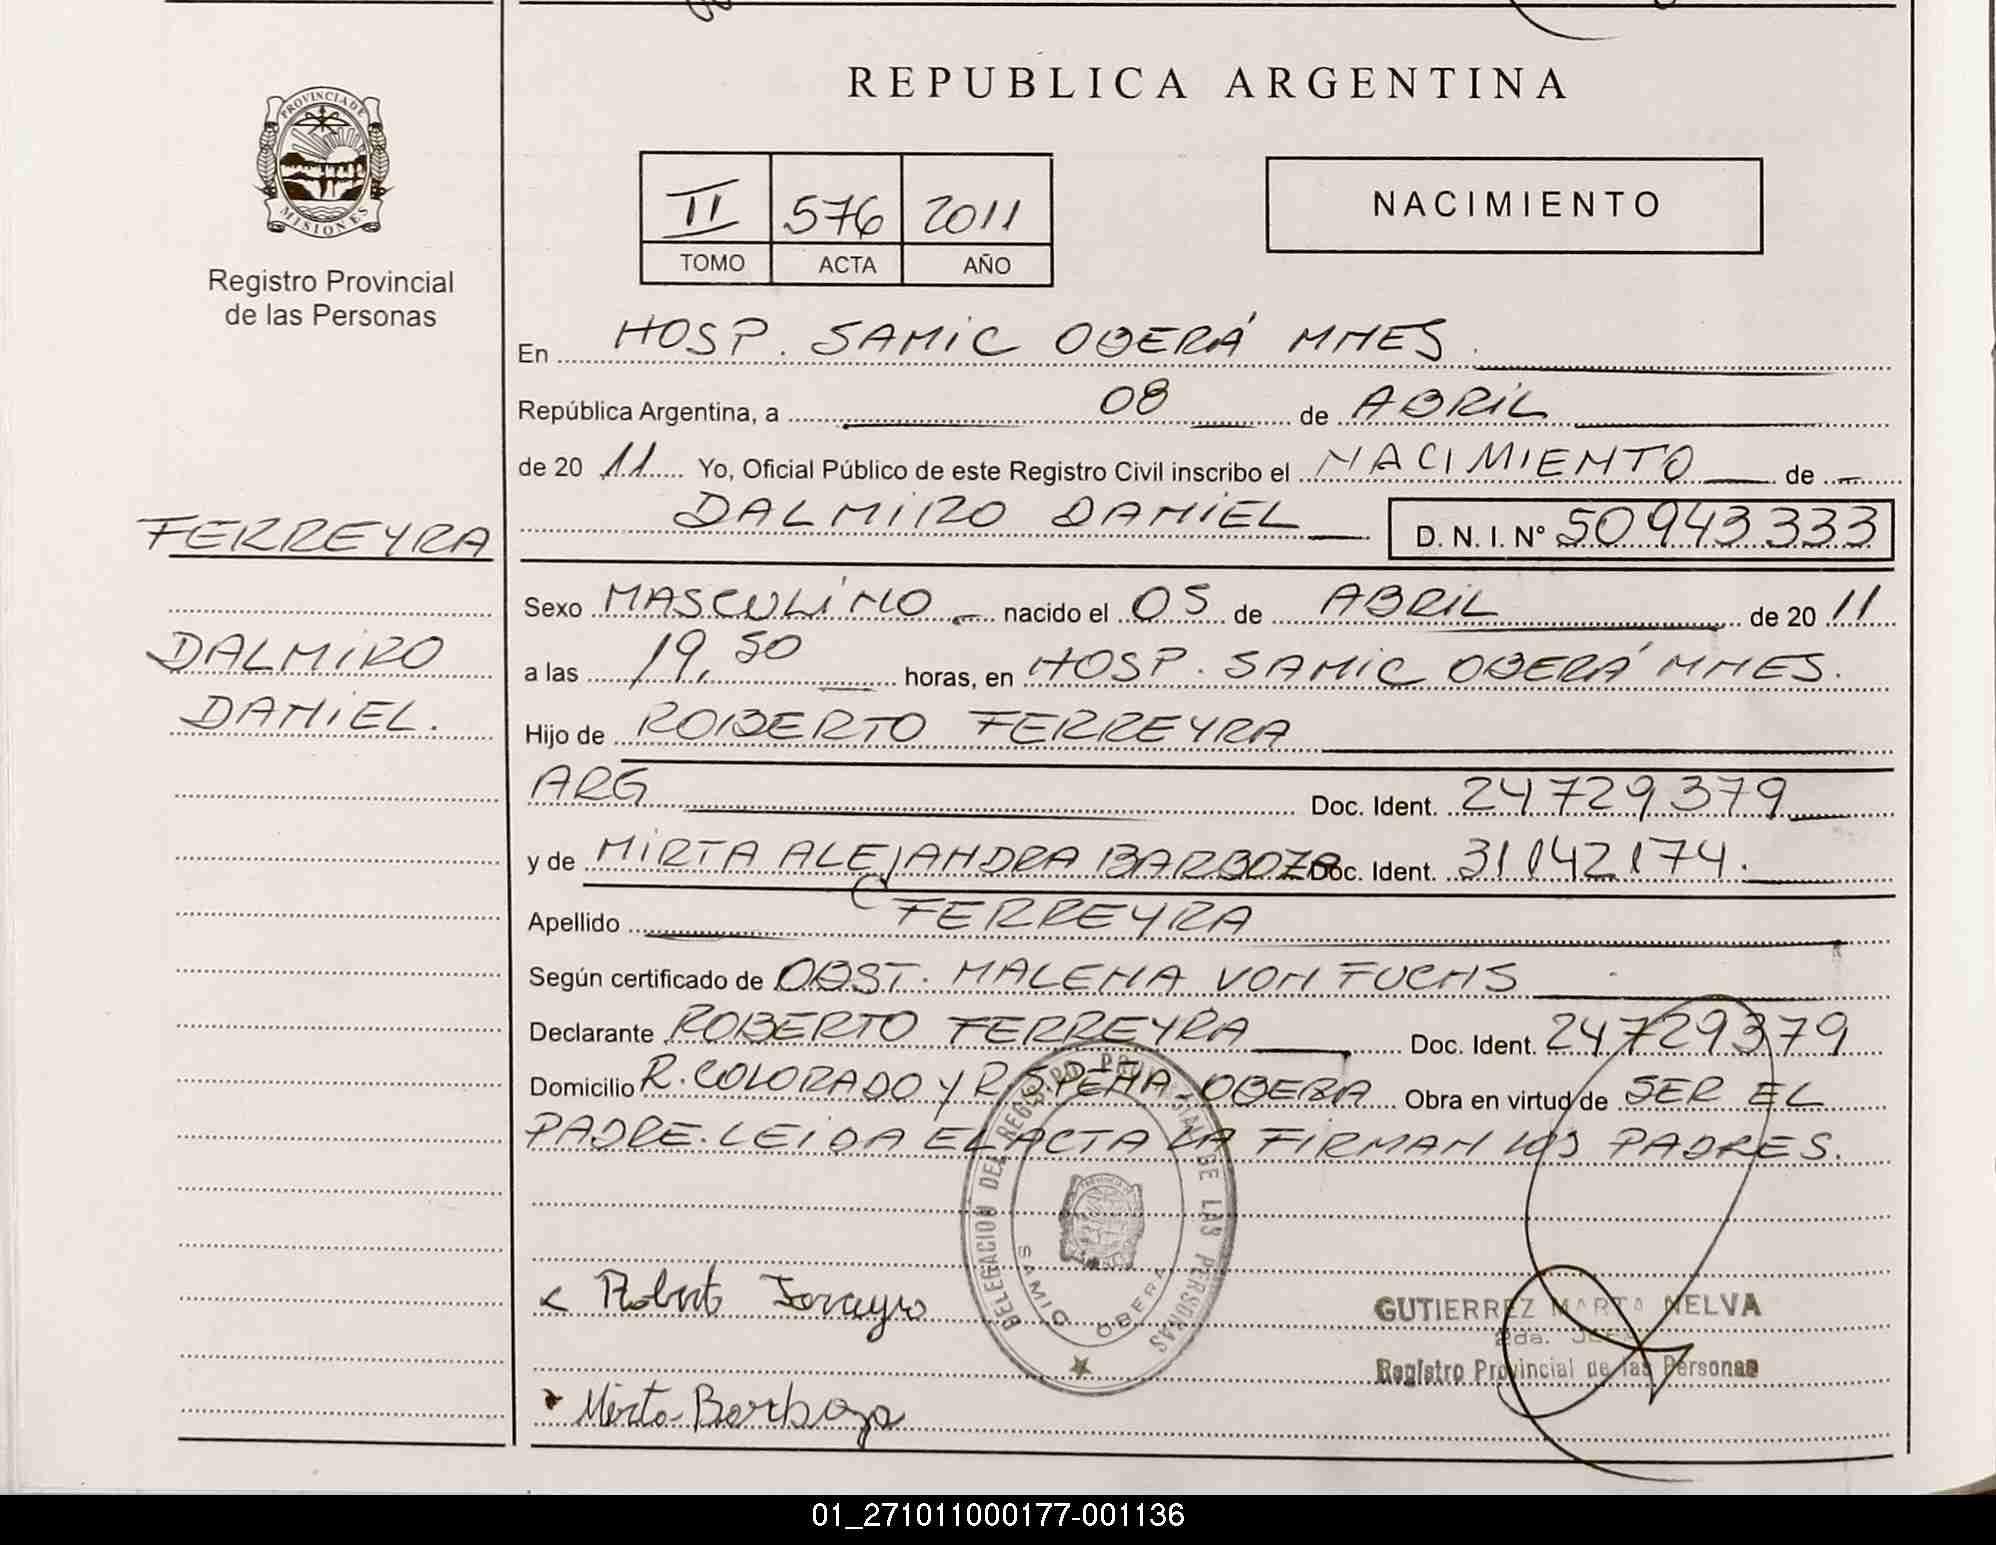 REPUBLICA ARGENTINA
PROVINCIA DE
MISIONES
Registro Provincial
de las Personas
II 576 2011
TOMO ACTA AÑO
NACIMIENTO
En HOSP. SAMIC OBERÁ MNES.
República Argentina, a 08 de ABRIL
de 20 11 Yo, Oficial Público de este Registro Civil inscribo el NACIMIENTO de
DALMIRO DANIEL D. N. I. N° 50943333
FERREYRA
DALMIRO
DANIEL.
Sexo MASCULINO nacido el 05 de ABRIL de 20 11
a las 19,50 horas, en HOSP. SAMIC OBERÁ MNES.
Hijo de ROBERTO FERREYRA
ARG Doc. Ident. 24729379
y de MIRTA ALEJANDRA BARBOZA Doc. Ident. 31142174.
Apellido FERREYRA
Según certificado de OBST. MALENA VON FUCHS
Declarante ROBERTO FERREYRA Doc. Ident. 24729379
Domicilio R. COLORADO Y R. S. PEÑA - OBERA Obra en virtud de SER EL
PADRE. LEIDA EL ACTA LA FIRMAN LOS PADRES.
DELEGACION DEL REGISTRO PROVINCIAL DE LAS PERSONAS
SAMIC OBERA
Roberto Ferreyra
Mirta Barboza
GUTIERREZ MARTA NELVA
2da. JEFA
Registro Provincial de las Personas
01_271011000177-001136